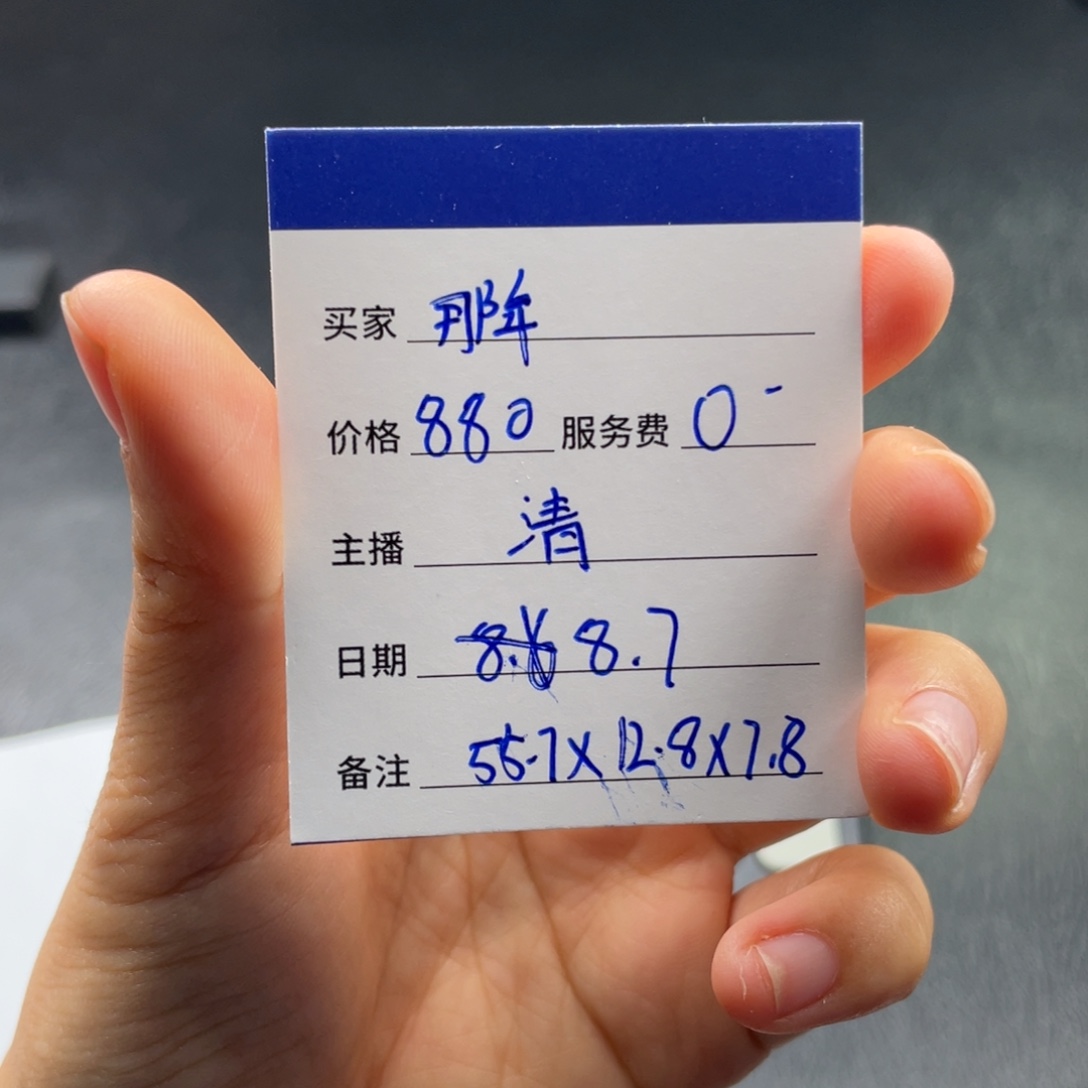 买家 那年
价格 880 服务费 0-
主播 清
日期 8.7
备注 55.7X12.8X7.8